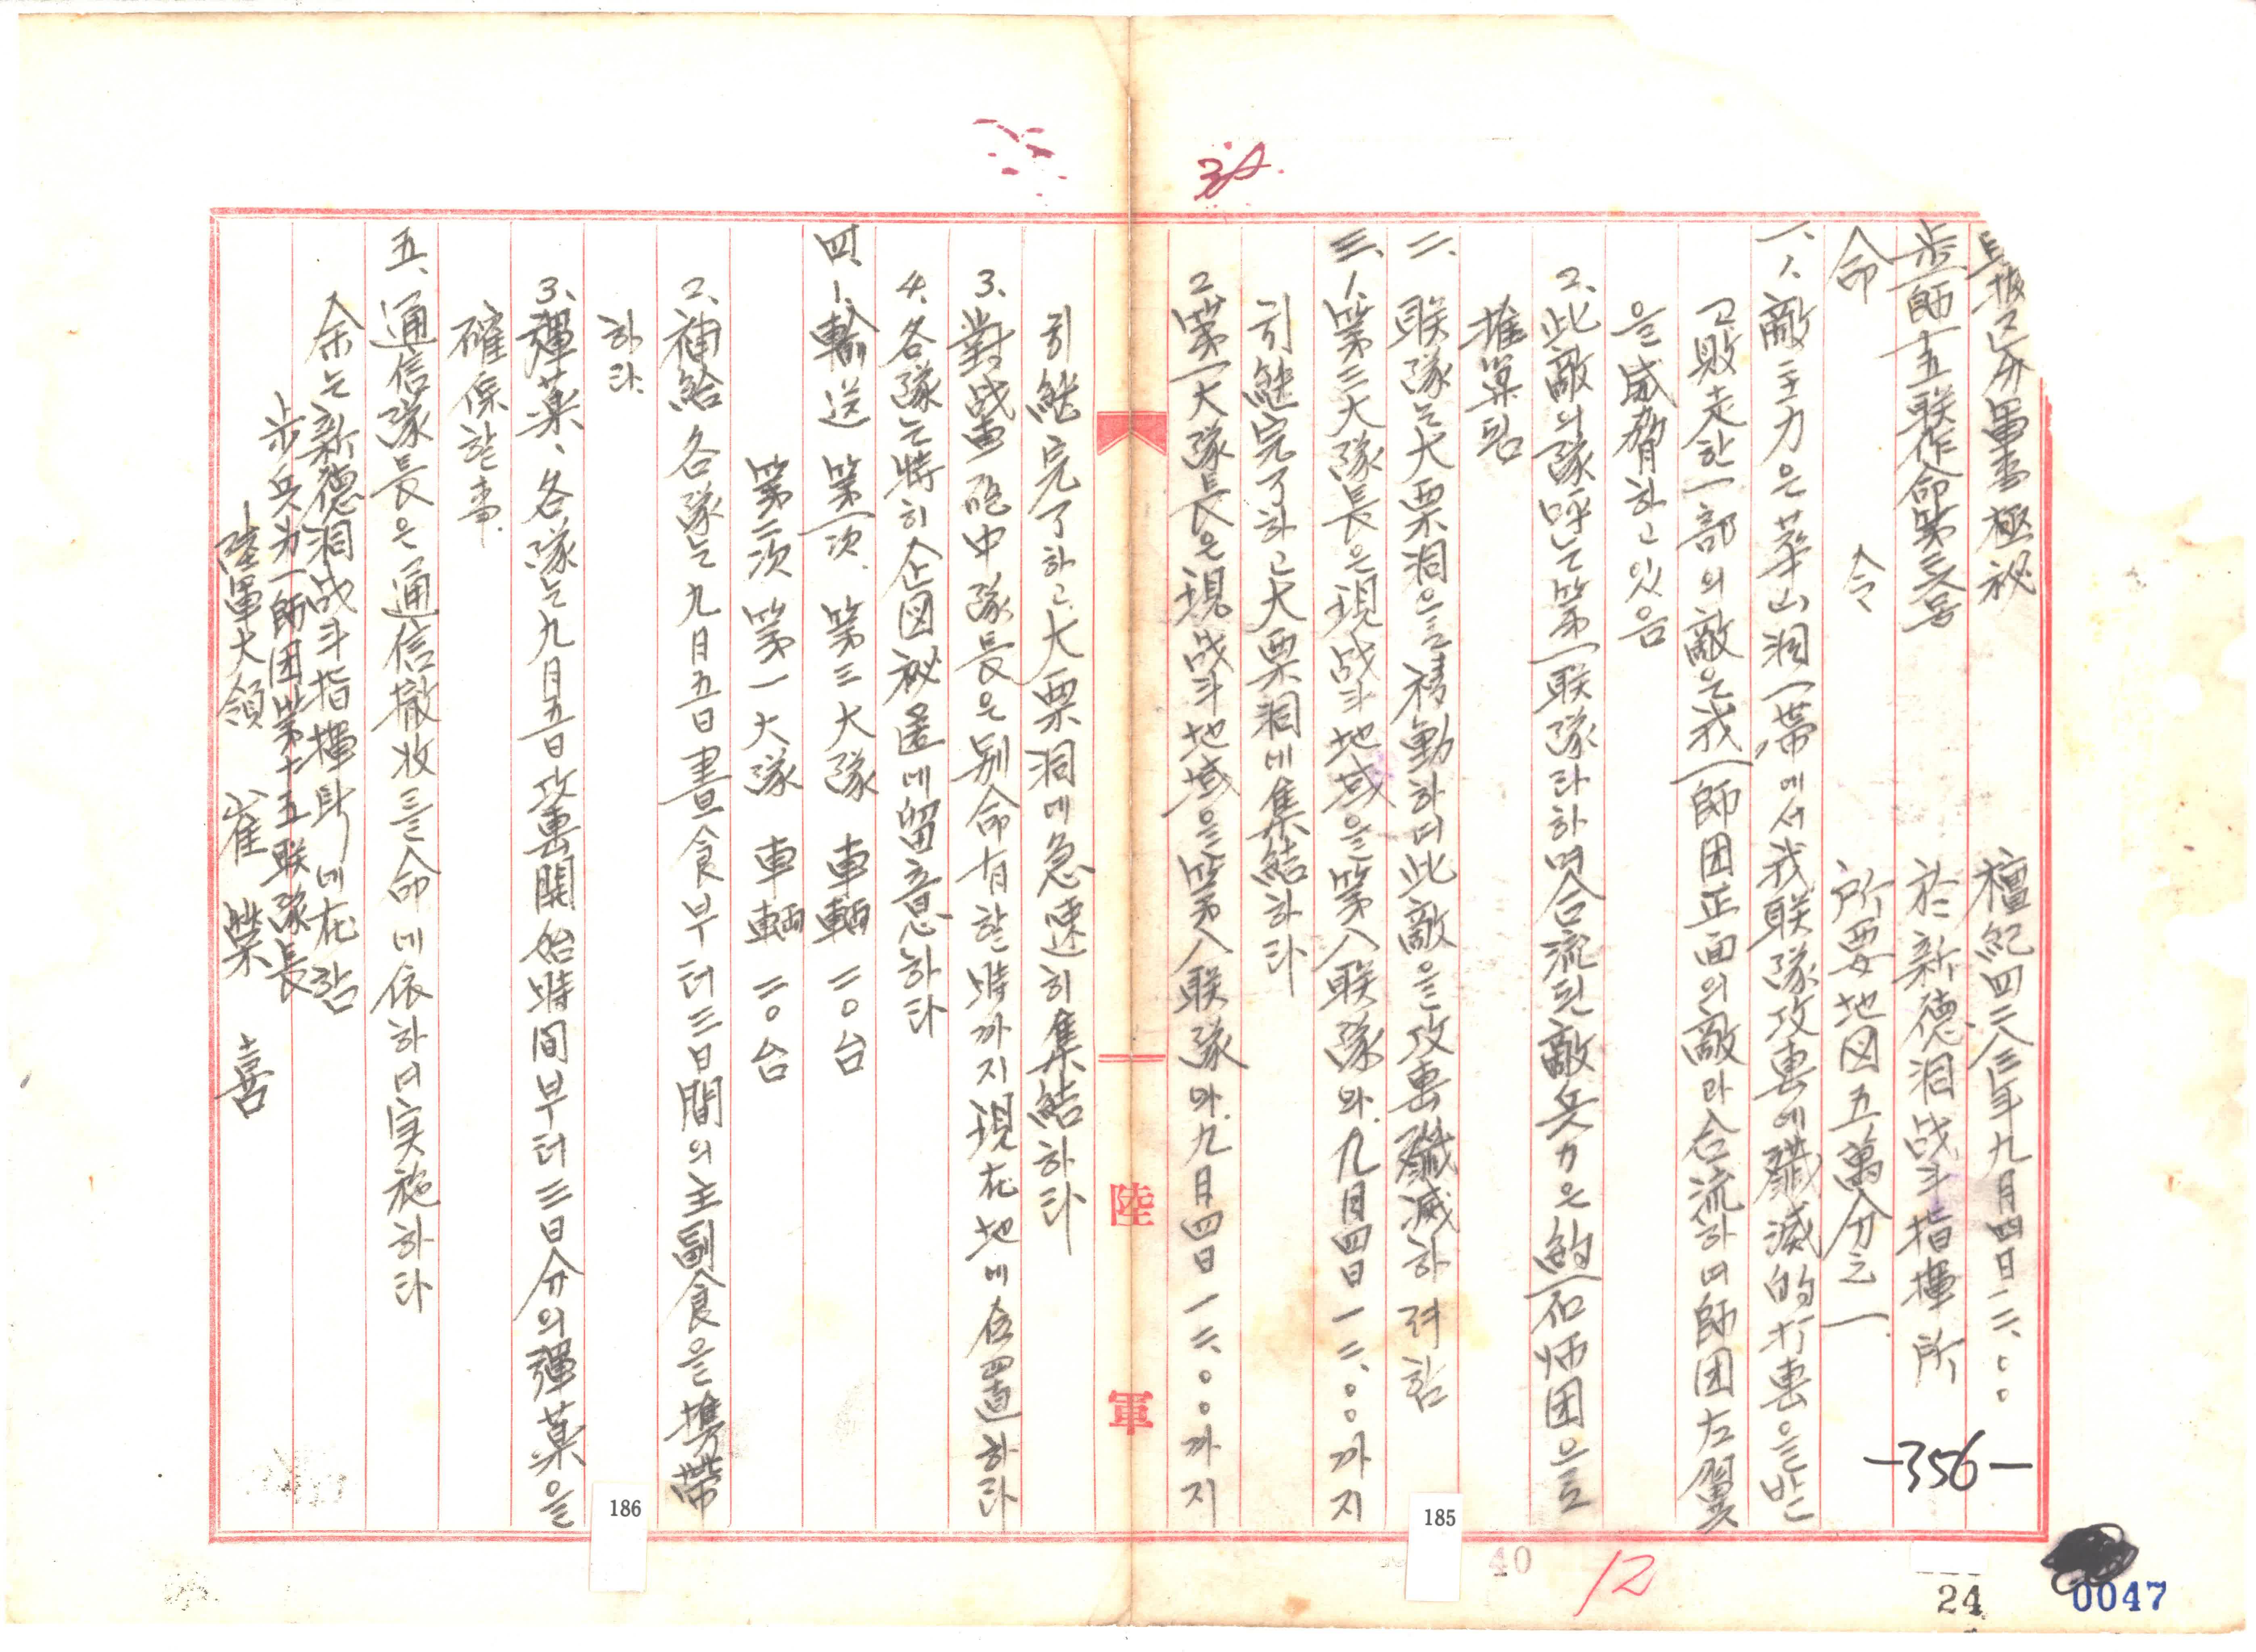 區分 軍事極秘 檀紀四二八三年九月四日一二、〇〇
步一師十五联作命第三号 於新德洞战斗指揮所
命 令 所要地図五萬分之一
一、1、敵主力은 莘山洞一帶에서 我联隊攻車에 殲滅的打車을 받
고 敗走한 一部의 敵은 我一師団正面의 敵과 合流하며 師団左翼
을 威脅하고 있음
2、此敵의 隊呼는 第一联隊라하며 合流된 敵兵力은 約一個师団으로
推算됨
二、联隊는 大栗洞으로 移動하며 此敵을 攻車殲滅하려함
三、1、第三大隊長은 現战斗地域을 第八联隊와 九月四日一二、〇〇까지
引継完了하고 大栗洞에 集結하라
2、第一大隊長은 現战斗地域을 第八联隊와 九月四日一二、〇〇까지
引継完了하고 大栗洞에 急速히 集結하라
3、對战車砲中隊長은 别命有할 時까지 現在地에 位置하라
4、各隊는 特히 企図祕匿에 留意하라
四、1、輸送 第一次 第三大隊 車輌 二〇台
第二次 第一大隊 車輌 二〇台
2、補給 各隊는 九月五日晝食부터 三日間의 主副食을 携帶
하라
3、彈薬、各隊는 九月五日攻車開始時間부터 三日分의 彈薬을
確保할 事
五、通信隊長은 通信撤收를 命에 依하며 実施하라
余는 新德洞战斗指揮所에 在함
步兵第一師団第十五联隊長
陸軍大領 崔榮喜
陸軍
-356-
185
186
40
12
24
0047